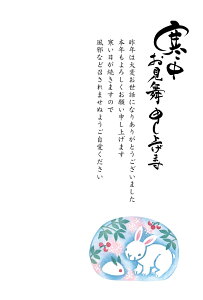 寒中
お見舞
申し上げます
昨年は大変お世話になりありがとうございました
本年もよろしくお願い申し上げます
寒い日が続きますので
風邪など召されませぬようご自愛ください